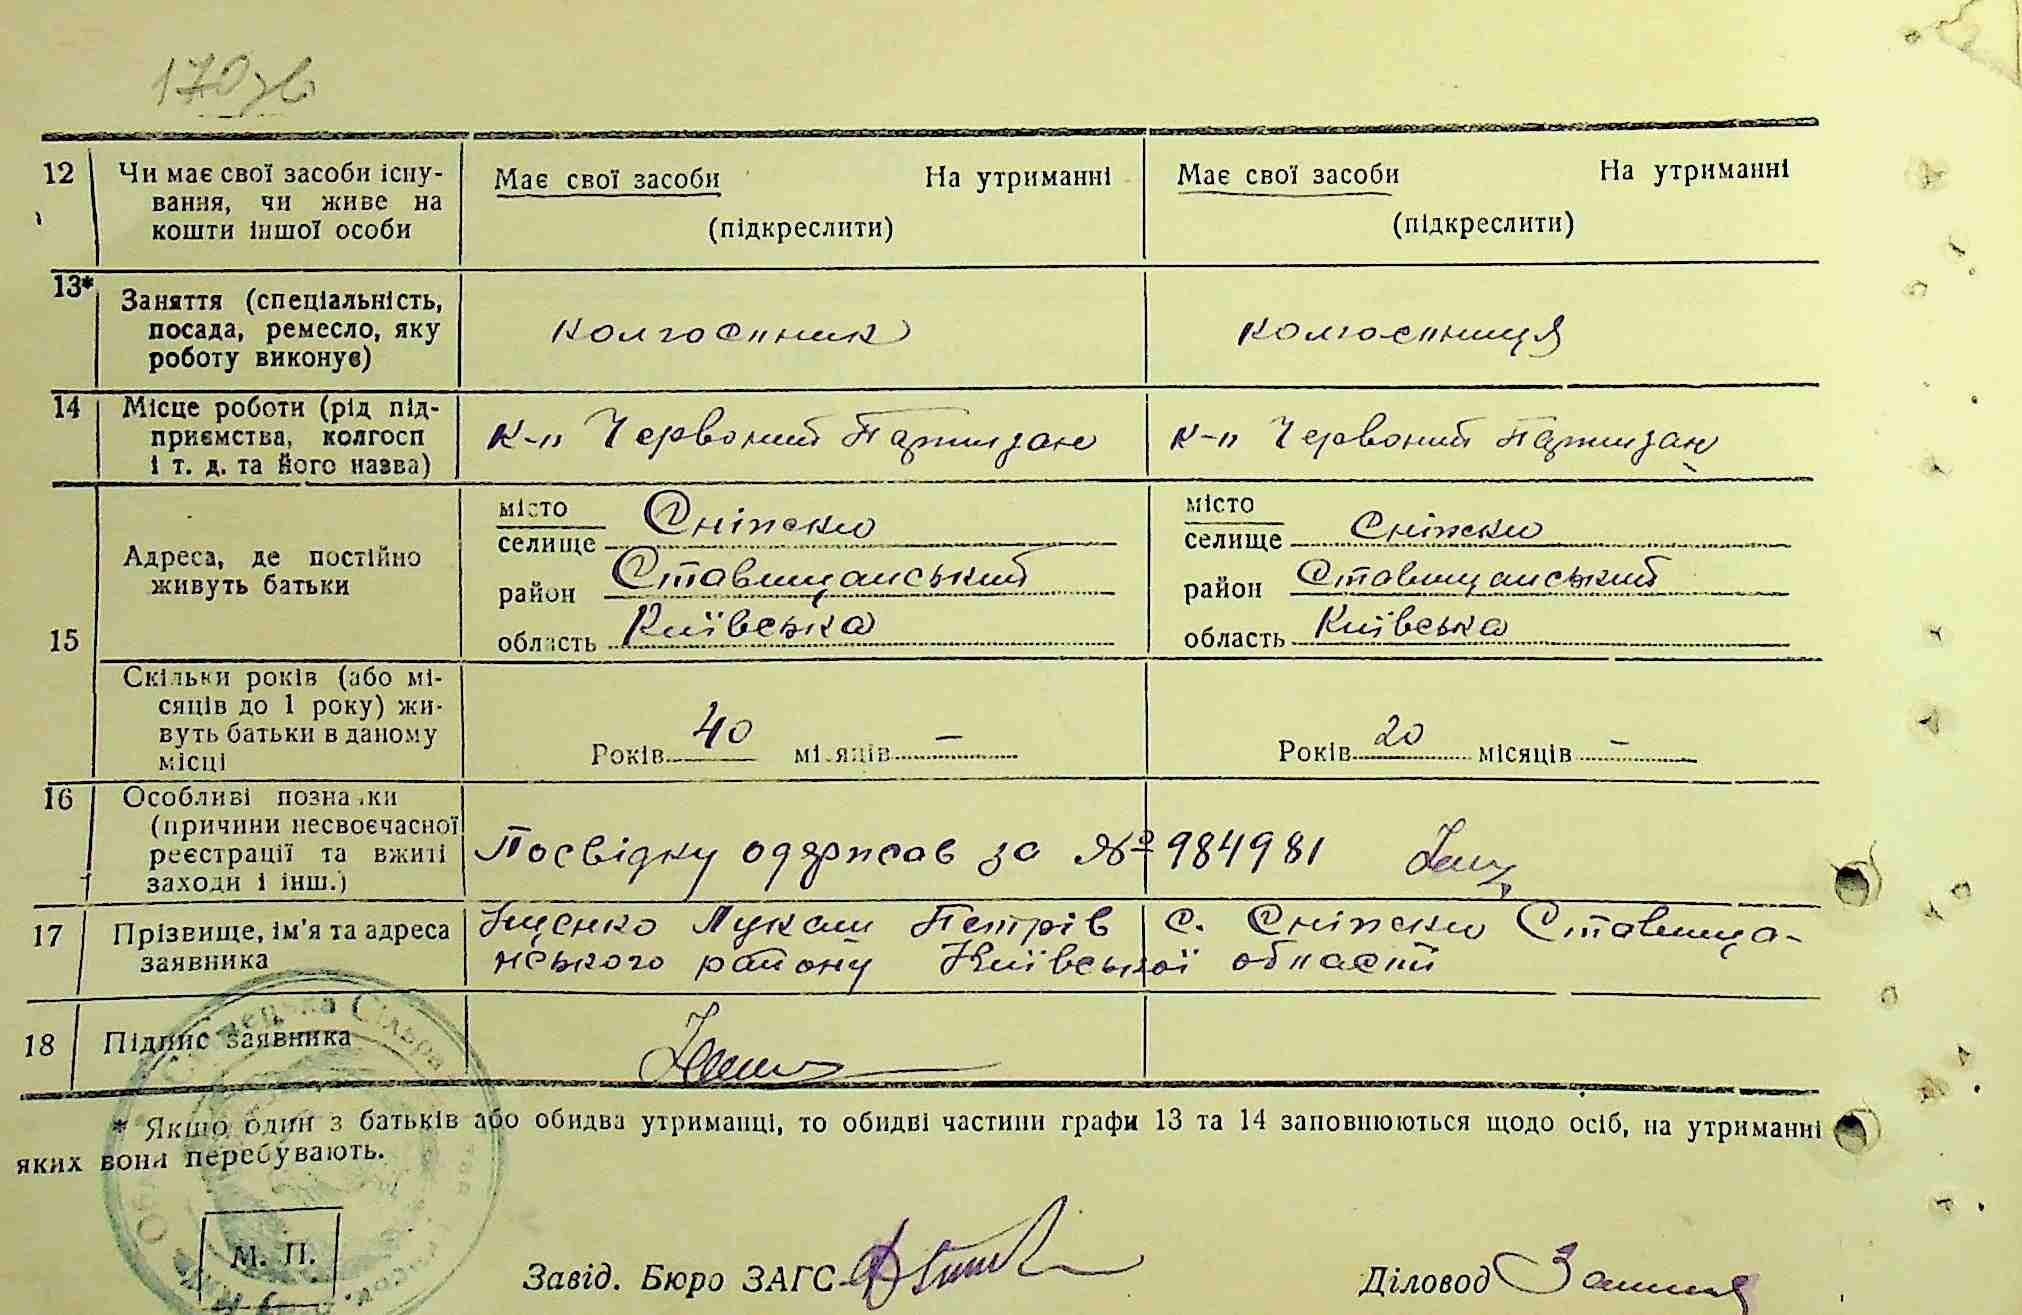 170зв
12 Чи має свої засоби існу-
вання, чи живе на
кошти іншої особи
Має свої засоби На утриманні
(підкреслити)
Має свої засоби На утриманні
(підкреслити)
13* Заняття (спеціальність,
посада, ремесло, яку
роботу виконує)
колгоспник
колгоспниця
14 Місце роботи (рід під-
приємства, колгосп
і т. д. та його назва)
К-п Червоний Партизан
К-п Червоний Партизан
15
Адреса, де постійно
живуть батьки
місто
селище Сніжки
район Ставищанський
область Київська
місто
селище Сніжки
район Ставищанський
область Київська
Скільки років (або мі-
сяців до 1 року) жи-
вуть батьки в даному
місці
Років 40 місяців –
Років 20 місяців –
16 Особливі познаки
(причини несвоєчасної
реєстрації та вжиті
заходи і інш.)
Посвідку одержав за № 984981
17 Прізвище, ім'я та адреса
заявника
Іщенко Лукаш Петрів с. Сніжки Ставища-
нського району Київської області
18 Підпис заявника
* Якщо один з батьків або обидва утриманці, то обидві частини графи 13 та 14 заповнюються щодо осіб, на утриманні
яких вони перебувають.
М. П.
Завід. Бюро ЗАГС
Діловод